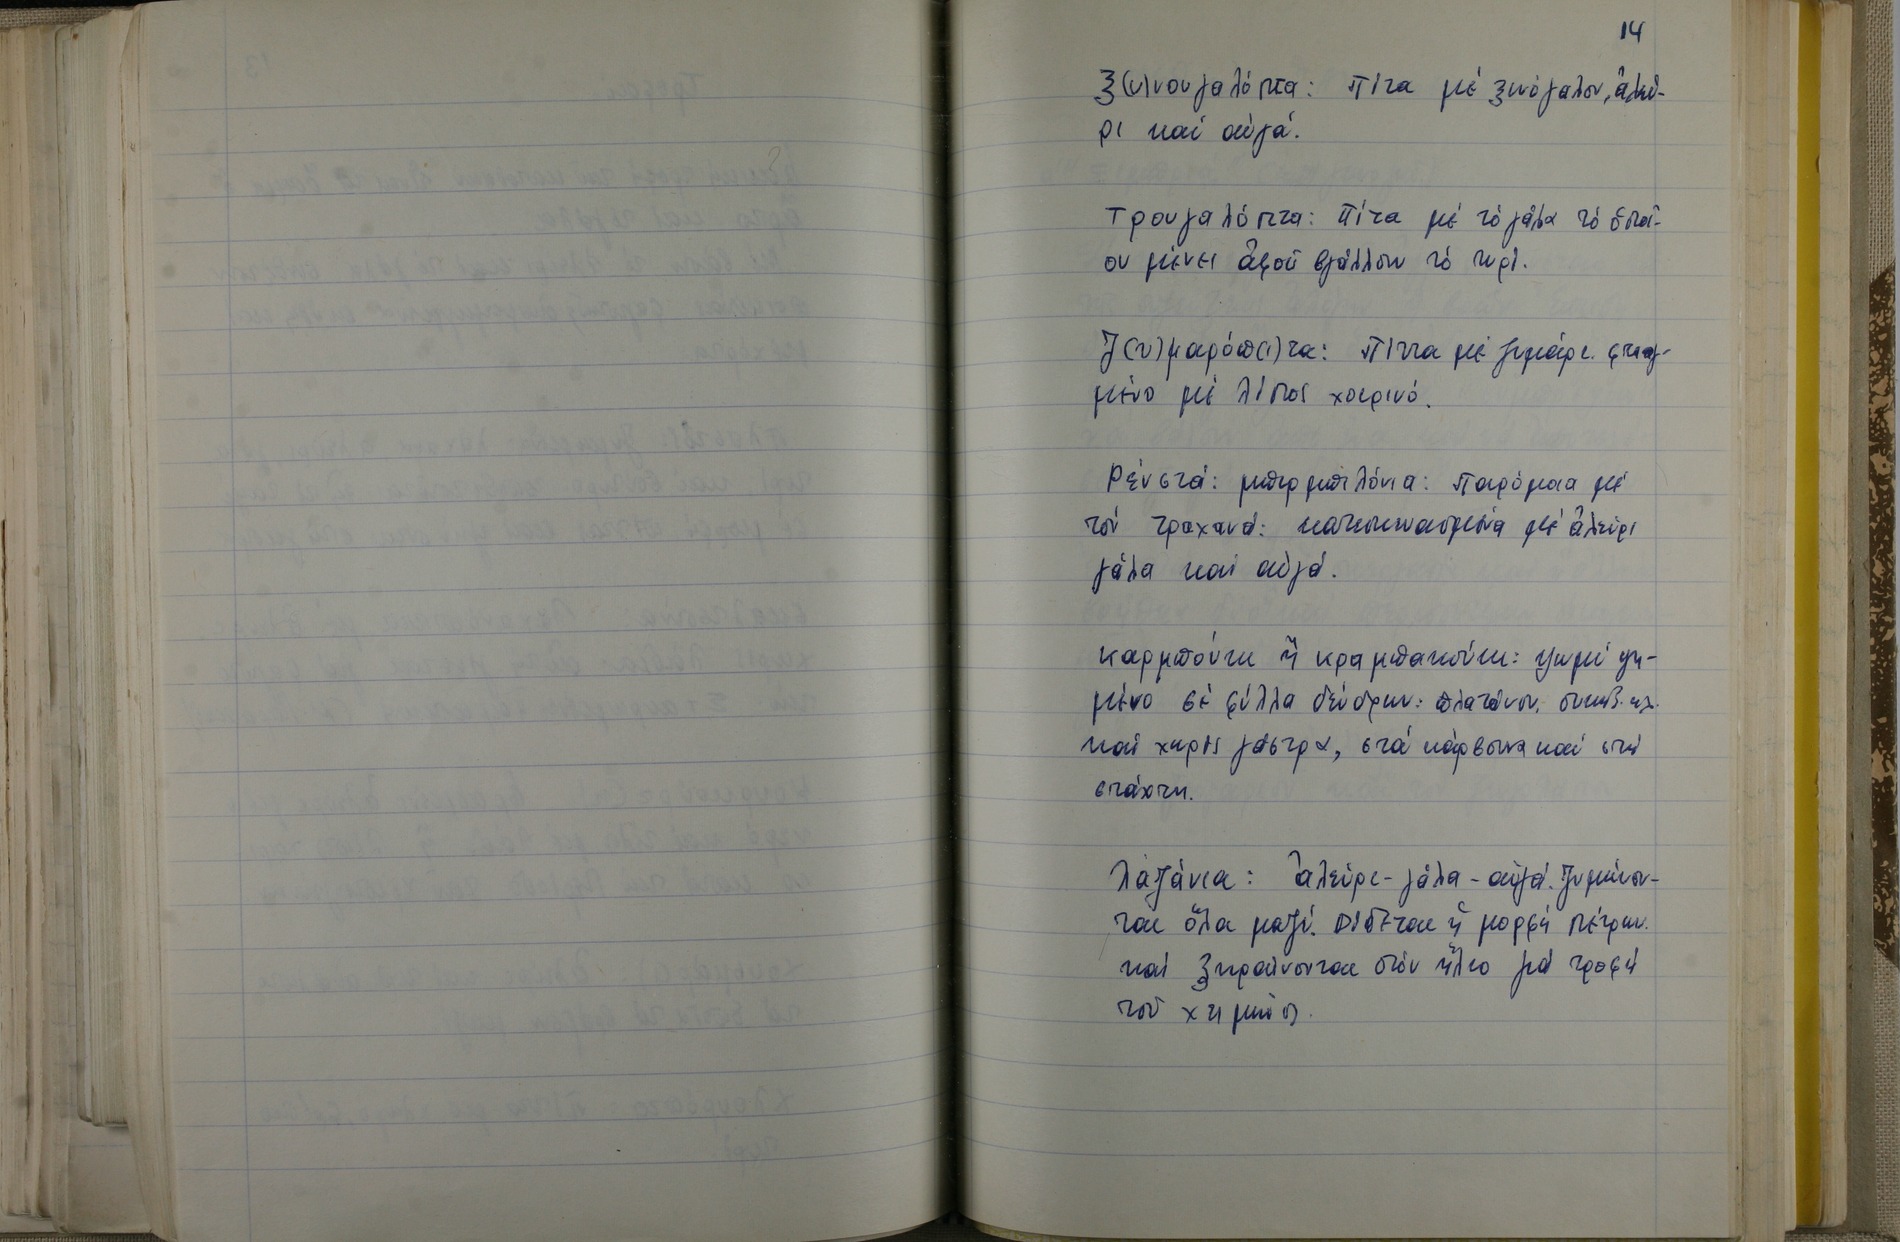 14
Ξ(υ)νουγαλόπτα: πίτα μέ ξυνόγαλον, ἀλεύ-
ρι καί αὐγά.
Τρουγαλόπτα: πίτα μέ τό γάλα τό ὁποῖ-
ον μένει ἀφοῦ βγάλλουν τό τυρί.
Ζ(υ)μαρόπ(ι)τα: πίττα μέ ζυμάρι φτιαγ-
μένο μέ λίπος χοιρινό.
Ρέντστά: μπιρμπιλόνια: παρόμοια μέ
τόν τραχανά: κατασκευασμένα μέ ἀλεύρι
γάλα καί αὐγά.
Καρμπούτι ἤ κραμπακούκι: ψωμί ψη-
μένο σέ φύλλα δένδρων: πλατάνου, συκιᾶς κλ.
καί χωρίς γάστρα, στά κάρβουνα καί στή
στάχτη.
Λαζάνια: ἀλεύρι - γάλα - αὐγά. Ζυμώνον-
ται ὅλα μαζί. Δίδεται ἡ μορφή πέτρων
καί ξηραίνονται στόν ἥλιο γιά τροφή
τοῦ χειμώνα.